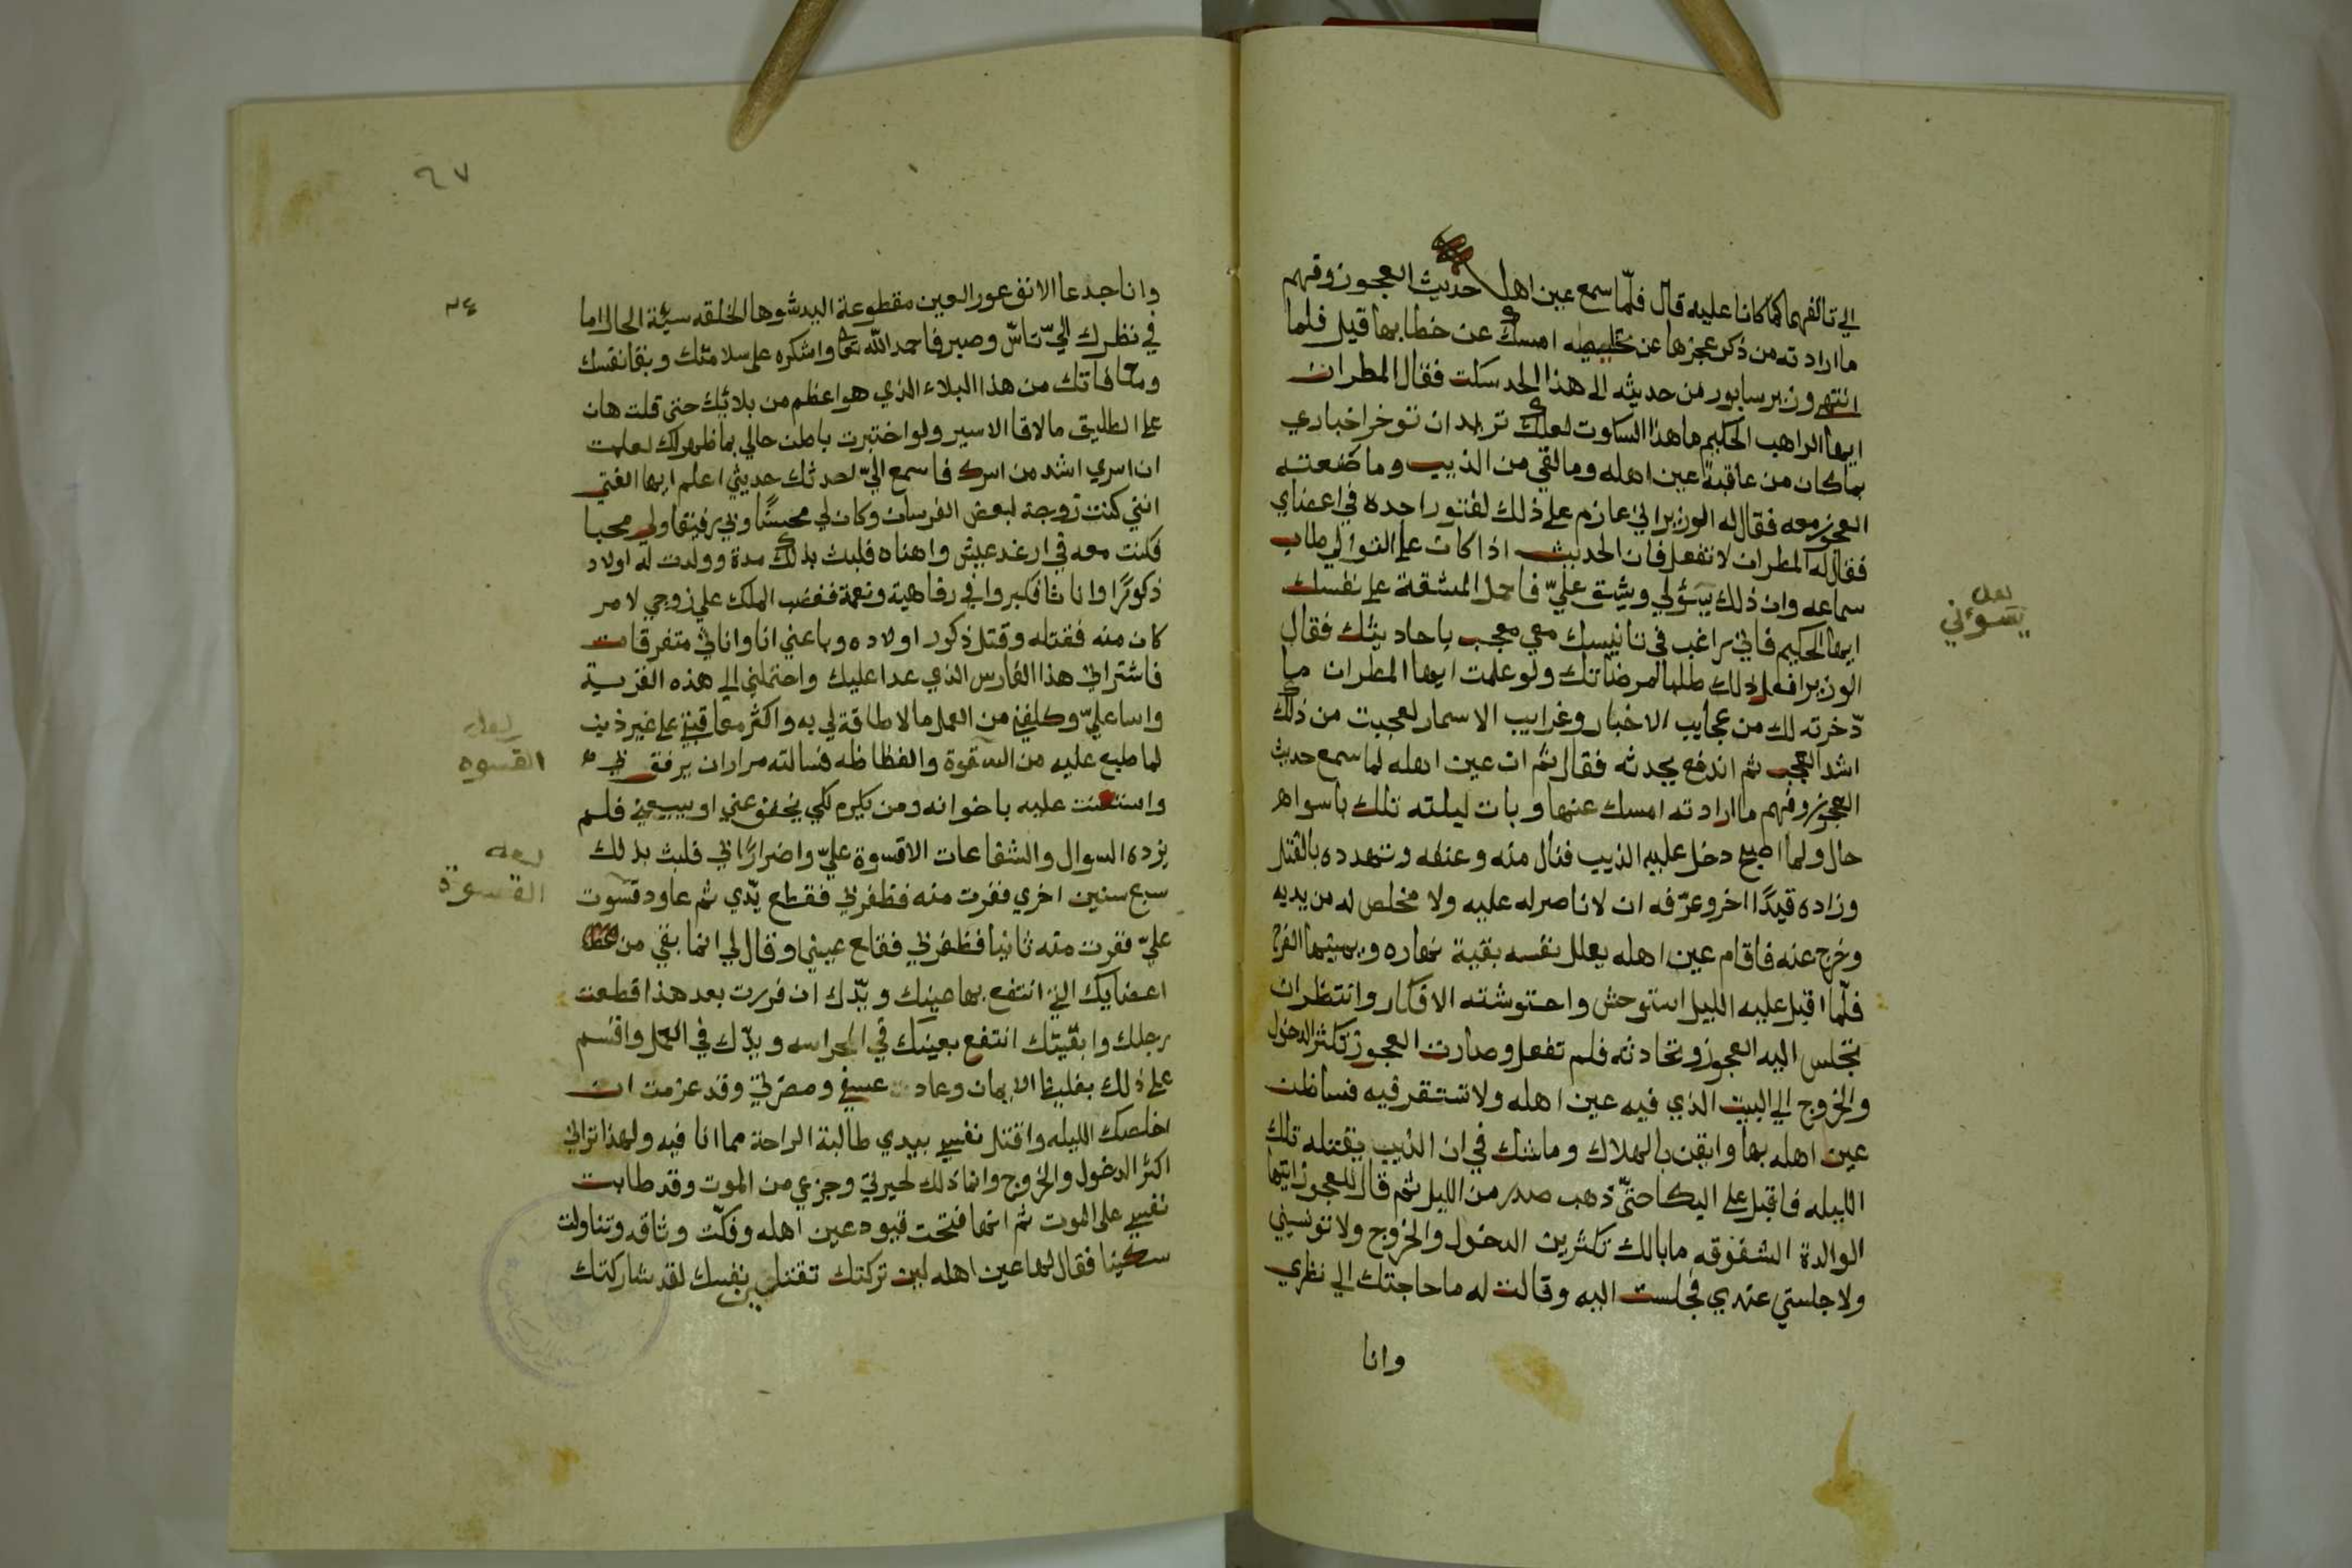 الي تالفهما كما كانا عليه قال فلمّا سمع عين اهله حديث العجوز وفهم
ما ارادته من ذكر عجزها عن تخليصه امسك عن خطابها قيل فلما
انتهى وزير سابور من حديثه الى هذا الحد سكت فقال المطران
ايها الراهب الحكيم ما هذا السكوت لعلك تريد ان توخر اخباري
بما كان من عاقبة عين اهله وما لقي من الذيب وما صنعته
العجوز معه فقال له الوزير اني عازم على ذلك لفتور اجده في اعضاي
فقال له المطران لا تفعل فان الحديث اذا كان علي التوالي طاب
سماعه وان ذلك يسؤلي ويشق عليّ فاحمل المشقة على نفسك
ايها الحكيم فاني راغب في تانيسك معي معجب باحاديثك فقال
الوزير افعل ذلك طلبا لمرضاتك ولو علمت ايها المطران ما
دّخرته لك من عجايب الاخبار وغرايب الاسمار لعجبت من ذلك
اشد العجب ثم اندفع يحدثه فقال ثم ان عين اهله لما سمع حديث
العجوز وفهم ما ارادته امسك عنها وبات ليلته تلك باسواء
حال ولما اصبح دخل عليه الذيب فنال منه وعنفه وتهدده بالقتل
وزاده قيدًا اخر وعرّفه ان لا ناصر له عليه ولا مخلص له من يديه
وخرج عنه فاقام عين اهله يعلل نفسه بقية نهاره ويمنيها الفرج
فلمّا اقبل عليه الليل استوحش واحتوشته الافكار وانتظر ان
تجلس اليه العجوز وتحادثه فلم تفعل وصارت العجوز تكثر الدخول
والخروج الي البيت الذي فيه عين اهله ولا تستقر فيه فسا ظن
عين اهله بها وايقن بالهلاك وما شك في ان الذيب يقتله تلك
الليله فاقبل على البكا حتىّ ذهب صدر من الليل ثم قال للعجوز ايتها
الوالدة الشفوقه ما بالك تكثرين الدخول والخروج ولا تونسيني
ولا جلستي عندي فجلست اليه وقالت له ما حاجتك الي نظري
وانا
لعله
يسوءني
٦٧
وانا جدعا الانف عور العين مقطوعة اليد شوها الخلقه سيئة الحال اما
في نظرك اليّ تاسّ وصبر فاحمد الله تعا واشكره على سلامتك وبقا نفسك
ومعافاتك من هذا البلاء الذي هو اعظم من بلائك حتى قلت هان
على الطليق ما لاقا الاسير ولو اختبرت باطن حالي بما ظهر لك لعلمت
ان اسري اشد من اسرك فاسمع اليّ لحدثك حديثي اعلم ايها الفتى
انني كنت زوجة لبعض الفرسان وكان لي محبسًا وبي رفيقا ولي محبا
فكنت معه في ارغد عيش واهناه فلبث بذلك مدة وولدت له اولاد
ذكورًا واناثا فكبروا في رفاهية ونعمة فغضب الملك على زوجي لامر
كان منه فقتله وقتل ذكور اولاده وباعني انا واناثي متفرقات
فاشتراني هذا الفارس الذي عدا عليك واحتملني الي هذه القرية
واسا عليّ وكلفني من العمل ما لا طاقة لي به واكثر معاقبتي على غير ذنب
لما طبع عليه من القوة والفظاظه فسالته مرارا ان يرفق بي
واستعنت عليه باخوانه ومن يكرم لكي يخفف عني او يبيعني فلم
يزده السوال والشفاعات الا قسوة عليّ واضرارًا بي فلبث بذلك
سبع سنين اخري ففرت منه فظفر بي فقطع يدّي ثم عاود قسوت
عليّ ففرت منه ثانيا فظفر بي فقلع عيني وقال لي انما بقي من
اعضايك التي انتفع بها عينك ويدّك ان فررت بعد هذا قطعت
رجلك وابقيتك انتفع بعينك في الحراسه ويدّك في العمل واقسم
على ذلك بغليظ الايمان وعاد عسفي ومضرتي وقد عزمت ان
اخلصك الليله واقتل نفسي بيدي طالبة الراحة مما انا فيه ولهذا تراني
اكثر الدخول والخروج وانما ذلك لحيرتي وجزعي من الموت وقد طابت
نفسي على الموت ثم انها فتحت قيود عين اهله وفكّت وثاقه وتناولت
سكينا فقال لها عين اهله لين تركتك تقتلين نفسك لقد شاركتك
لعله
القسوه
لعله
القسوة